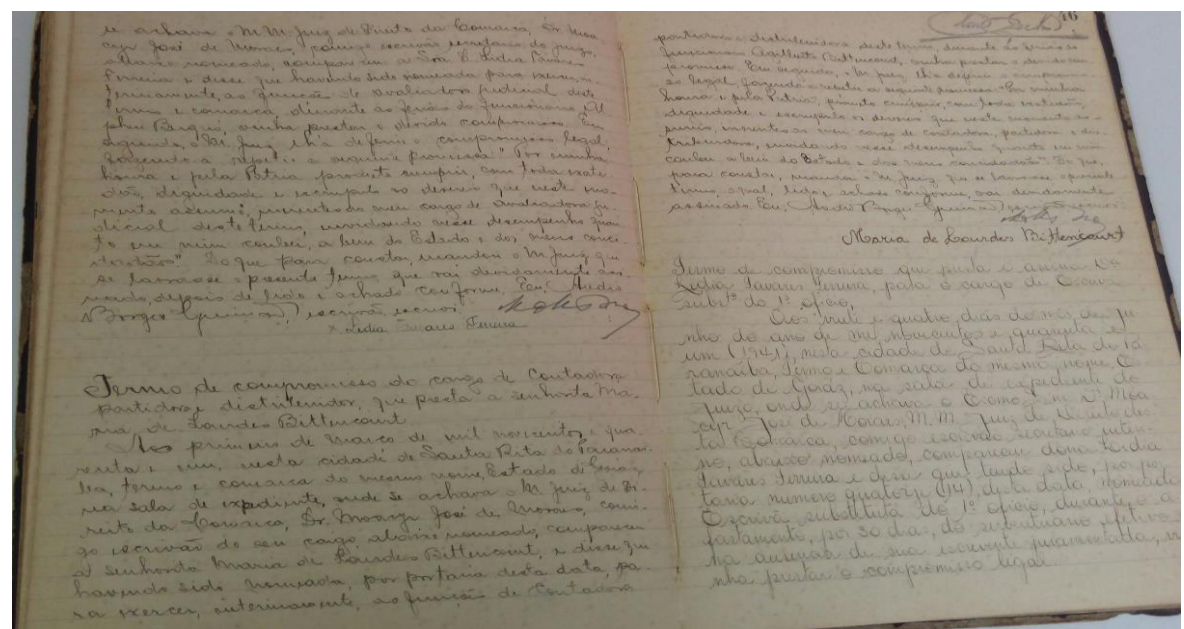 se achava o M. M. Juiz de Direito da Comarca, Dr. Moa-
cyr José de Moraes, comigo escrivão secretario do juizo,
abaixo nomeado, compareceu a Sra. D. Lidia Tavares
Ferreira e disse que havendo sido nomeada para exercer, in-
terinamente, as funções de avaliadora judicial deste
termo e comarca, durante as ferias do funcionario, Al-
Borges, vinha prestar o devido compromisso. Em
seguida, o M. Juiz lhe deferiu o compromisso legal,
fazendo-a repetir a seguinte promessa: "Por minha
honra e pela Patria prometo cumprir, com toda exati-
dão, dignidade e escrupulo os deveres que neste mo-
mento assumo, inerentes ao meu cargo de avaliadora ju-
dicial deste termo, envidando nesse desempenho quan-
to em mim couber, a bem do Estado e dos meus conci-
dadãos." Do que para constar, mandou o M. Juiz que
se lavrasse o presente termo, que vai devidamente assi-
nado, depois de lido e achado conforme. Eu,
Borges escrivão, escrevi.
x Lidia Tavares Ferreira
Termo de compromisso do cargo de Contadora
partidora e distribuidor, que presta a senhorita Ma-
ria de Lourdes Bittencourt
Aos primeiro de Março de mil novecentos e qua-
renta e um, nesta cidade de Santa Rita do Paranai-
ba, termo e comarca do mesmo nome, Estado de Goiaz,
na sala de expediente, onde se achava o M. Juiz de Di-
reito da Comarca, Dr. Moacyr José de Moraes, comi-
go escrivão do seu cargo, abaixo nomeado, compareceu
a senhorita Maria de Lourdes Bittencourt, e disse que
havendo sido nomeada, por portaria desta data, pa-
ra exercer, interinamente, as funções de Contadora
16
partidora e distribuidora deste termo, durante as ferias do
funcionario Bittencourt, vinha prestar o devido compro-
misso. Em seguida, o M. Juiz lhe deferiu o compromis-
so legal, fazendo-a repetir a seguinte promessa: "Por minha
honra e pela Patria, prometo cumprir, com toda exatidão,
dignidade e escrupulo os deveres que neste momento as-
sumo, inerentes ao meu cargo de contadora, partidora e dis-
tribuidora, envidando nesse desempenho quanto em mim
couber a bem do Estado e dos meus concidadãos". Do que,
para constar, mandou o M. Juiz que se lavrasse o presente
termo, o qual, lido e achado conforme, vai devidamente
assinado. Eu, Borges
Maria de Lourdes Bittencourt
Termo de compromisso que presta e assina Da.
Lidia Tavares Ferreira, para o cargo de Escrivã
subste. do 1º oficio,
Aos vinte e quatro dias do mês de ju-
nho do ano de mil novecentos e quarenta e
um (1941), nesta cidade de Santa Rita do Pa-
ranaiba, Termo e Comarca do mesmo nome, Es-
tado de Goiaz, na sala de expediente do
Juizo, onde se achava o Exmo. Snr. Dr. Moa-
cyr José de Moraes, M. M. Juiz de Direito des-
ta Comarca, comigo escrivão secretario interi-
no, abaixo nomeado, compareceu dona Lidia
Tavares Ferreira e disse que tendo sido, por por-
taria numero quatorze (14), desta data, nomeada
Escrivã substituta do 1º oficio, durante o a-
fastamento, por 30 dias, do serventuario efetivo
na ausencia de sua escrevente juramentada, vi-
nha prestar o compromisso legal.